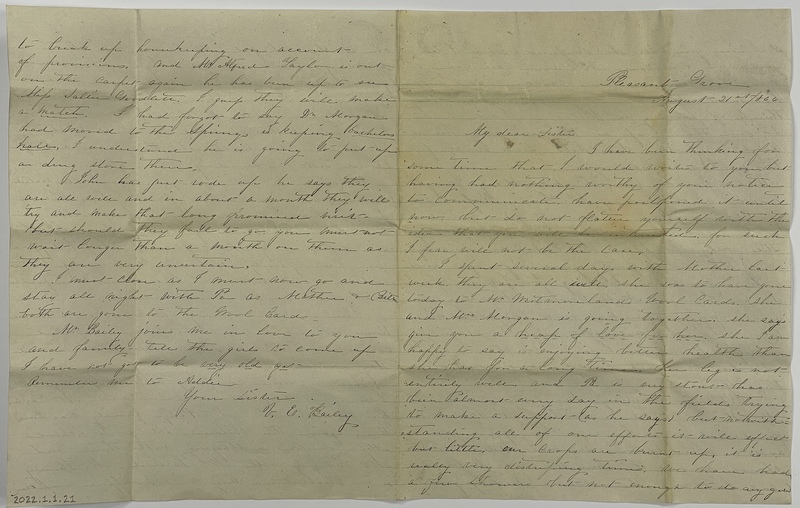 Pleasant Grove
August 21st
My dear Sister
I have been thinking for
some time that I would write to you but
having had nothing worthy of your notice
to communicate have postponed it until
now but do not flatter yourself with the
idea that you will be for such
I fear will not be the case.
I spent several days with Mother last
week they are all well she was to have gone
today to Mr Card. She
and Mrs Morgan is going together. she says
give you a heap of love for her. she I am
happy to say is enjoying better health than
she has for a long time. her leg is not
entirely well and Pa is very stout has
been almost every day in the fields trying
to make a support as he says but notwith-
standing all of our efforts it will effect
but little. our crops are burnt up. it is
really very distressing times. We have had
a few showers but not enough to do any good
to break up housekeeping on account
of provisions. and Mr Alfred Taylor is out
on the carpet again he has been up to see
Miss Sallie I guess they will make
a match. I had forgot to say Dr Morgan
had moved to the Springs is keeping bachelors
hall. I understand he is going to put up
a drug store there.
John has just rode up he says they
are all well and in about a month they will
try and make that long promised visit
but should they fail to go you must not
wait longer than a month on them as
they are very uncertain.
I must close as I must now go and
stay all night with Pa as Mother &
both are gone to the Wool Card.
Mr Bailey joins me in love to you
and family. tell the girls to come up
I have not got to be very old yet
Remember me to Addie
Your Sister
V. E. Bailey
2022.1.1.21